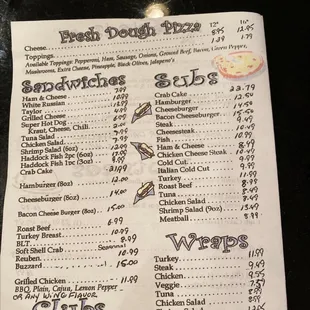 Fresh Dough Pizza
12" 16"
Cheese 8.95 12.95
Toppings 1.29 1.99
Available Toppings: Pepperoni, Ham, Sausage, Onions, Ground Beef, Bacon, Green Pepper,
Mushrooms, Extra Cheese, Pineapple, Black Olives, Jalapeno's
Sandwiches
Ham & Cheese 7.99
White Russian 10.99
Taylor
Grilled Cheese
Super Hot Dog
Kraut, Cheese, Chili
Tuna Salad 7.99
Chicken Salad
Shrimp Salad (6oz) 12.00
Haddock Fish 2pc (6oz) 17.00
Haddock Fish 1pc (3oz) 9.99
Crab Cake
Hamburger (8oz) 12.00
Cheeseburger (8oz) 14.00
Bacon Cheese Burger (8oz) 15.00
Roast Beef 6.99
Turkey Breast 10.99
BLT 8.99
Soft Shell Crab Seasonal
Reuben
Buzzard 15.00
Grilled Chicken 11.99
BBQ, Plain, Cajun, Lemon Pepper
OR ANY WING FLAVOR
Clubs
Subs
Crab Cake 23.79
Hamburger 12.50
Cheeseburger
Bacon Cheeseburger 15.50
Steak 10.49
Cheesesteak
Fish 10.99
Ham & Cheese
Chicken Cheese Steak 10.49
Cold Cut 9.99
Italian Cold Cut 9.99
Turkey 11.99
Roast Beef
Tuna 8.49
Chicken Salad
Shrimp Salad (9oz) 13.49
Meatball 8.99
Wraps
Turkey 11.99
Steak 9.49
Chicken 9.55
Veggie 7.59
Tuna 8.99
Chicken Salad
Shrimp Salad